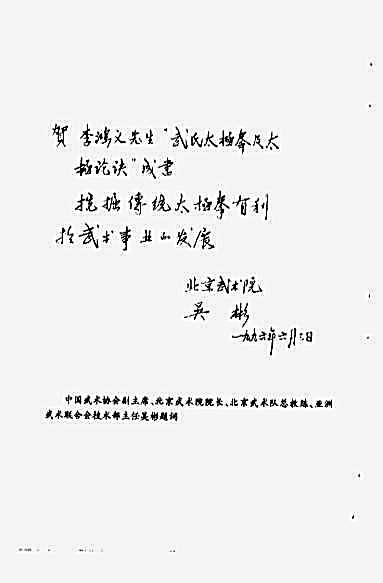 贺 李鸿义先生“武氏太极拳及太
极论诀”成书
挖掘傳统太极拳有利
於武术事业的发展
北京武术院
吴 彬
一九九六年六月三日
中国武术协会副主席、北京武术院院长、北京武术队总教练、亚洲
武术联合会技术部主任吴彬题词